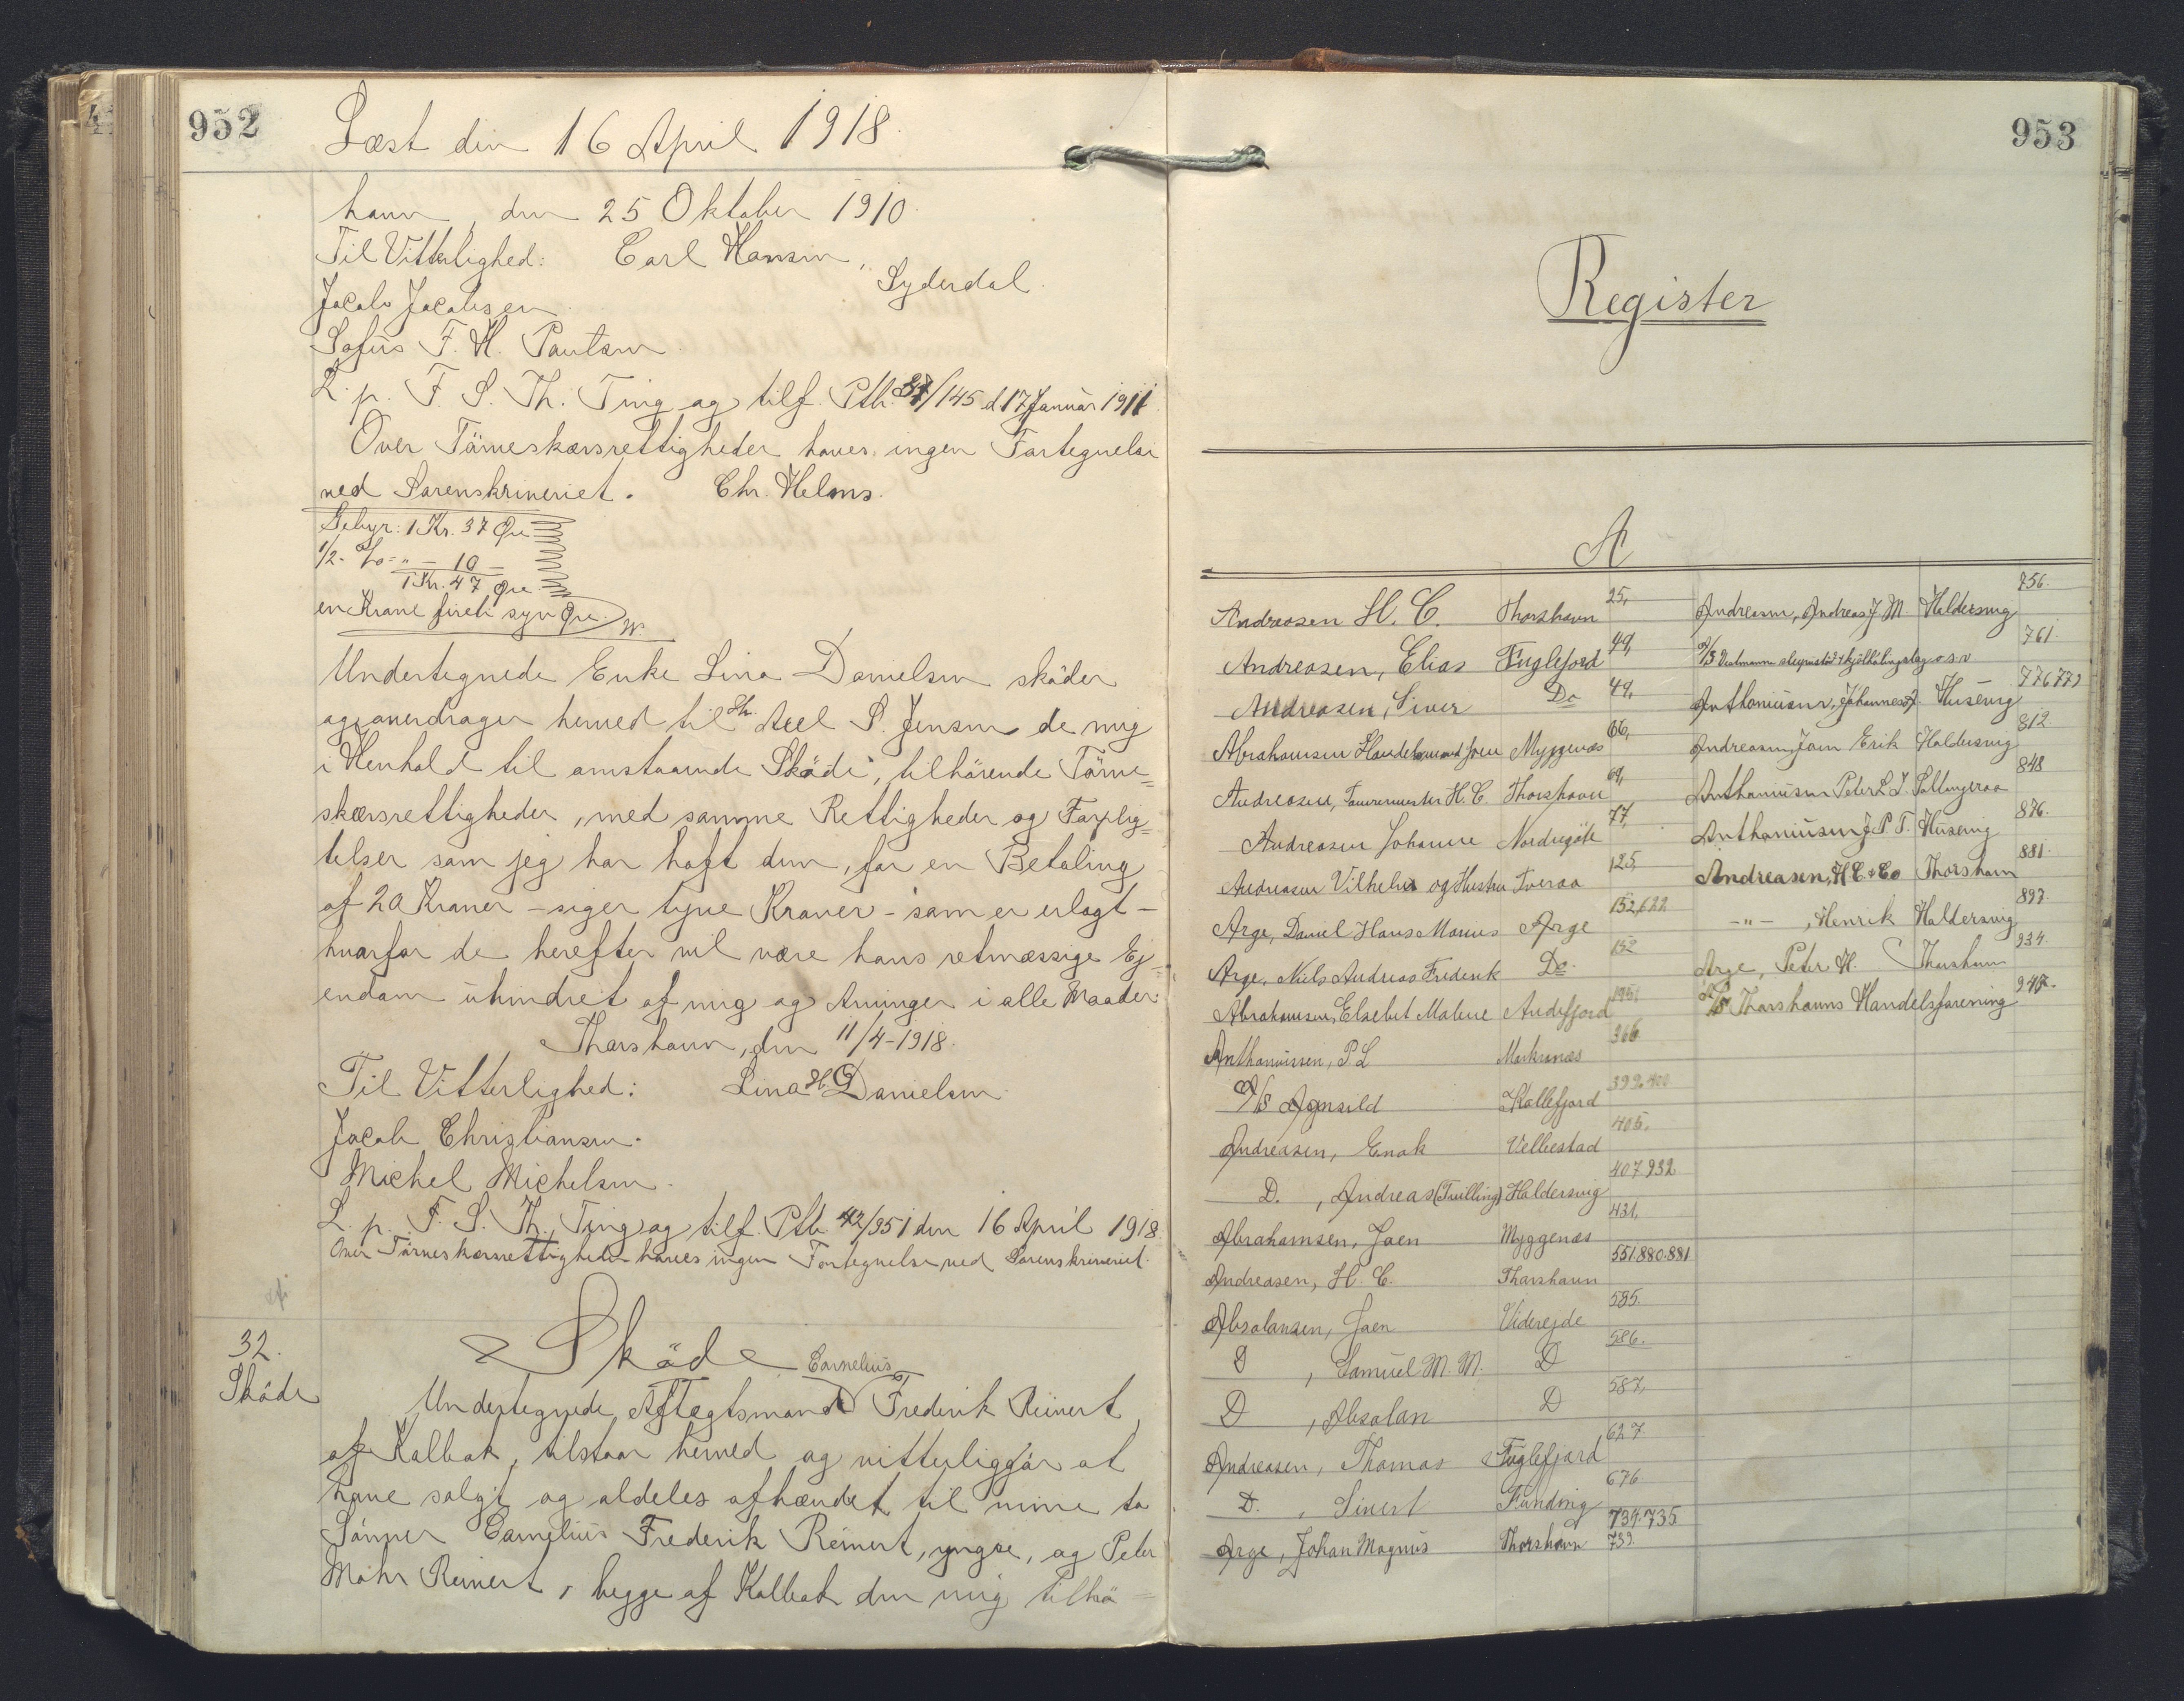 952
Læst den 16 April 1918.
havn, den 25 Oktober 1910.
Til Vitterlighed: Carl Hansen,
Syderdal.
Jacob Jacobsen
Sofus F. H. Poulsen
L. p. F. S. Th. Ting og tilf. Ptb. 37/145 d. 17 Januar 1911.
Over Tärneskærsrettigheder haves ingen Fortegnelse
ved Sorenskriveriet. Chr. Helms.
Gebyr: 1 Kr. 37 Øre
1/2 - do - " - 10 -
1 Kr. 47 Øre
en Krone fireti syv Øre.
Undertegnede Enke Lina Danielsen skøder
og overdrager herved til Hr. Axel S. Jensen de mig
i Henhold til omstaaende Skøde, tilhörende Tärne=
skærsrettigheder, med samme Rettigheder og Forplig=
telser som jeg har haft dem, for en Betaling
af 20 Kroner - siger tyve Kroner - som er erlagt -
hvorfor de herefter vil være hans retmæssige Ej=
endom uhindret af mig og Arvinger i alle Maader.
Thorshavn, den 11/4-1918.
Til Vitterlighed: Lina H. O. Danielsen
Jacob Christiansen.
Michel Michelsen.
L. p. F. S. Th. Ting og tilf. Ptb. 42/951 den 16 April 1918.
Over Tärneskærsrettigheder haves ingen Fortegnelse ved Sorenskriveriet.
32.
Skøde
Skøde
Cornelius
Undertegnede Aftægtsmand Frederik Reinert,
af Kalbak, tilstaar herved og vitterliggör at
have solgt og aldeles afhændet til mine to
Sönner Cornelius Frederik Reinert, yngre, og Peter
Mohr Reinert, begge af Kalbak den mig tilhö=
953
Register
A
Andreasen H. C. Thorshavn 25,
Andreasen, Elias Fuglefjord 49,
Andreasen, Siver Do 49,
Abrahamsen Handelsmand Joen Myggenæs 66,
Andreasen, Tømrermester H. C. Thorshavn 69,
Andreasen Johanne Nordregöte 77,
Andreasen Vilhelm og Hustru Tveraa 125,
Arge, Daniel Hans Marius Arge 152, 622
Arge, Niels Andreas Frederik Do. 152
Abrahamsen, Elsebet Malene Andefjord 195,
Anthoniussen, P. L Morkranæs 366
A/S Agnsild Kollefjord 399, 400
Andreasen, Enok Velbestad 405,
D. , Andreas (Tvilling) Haldersvig 407 932
Abrahamsen, Joen Myggenæs 431,
Andreasen, H. C. Thorshavn 551.880.881
Absalonsen, Joen Viderejde 585.
D , Samuel M. M. D 586.
D , Absalon D 587,
Andreasen, Thomas Fuglefjord 627.
D. , Sivert Funding 676
Arge, Johan Magnus Thorshavn 734.735 733.
Andreasen, Andreas J. M. Haldersvig 756.
761.
Anthoniusen, Johannes J. Husevig 776 779
Andreasen, Joen Erik Haldersvig 812
Anthoniusen Peter L. J. Saltangeraa 848
Anthoniusen J. P. T. Husevig 876.
Andreasen, H C & Co Thorshavn 881.
- " - , Henrik Haldersvig 892.
Arge, Peter H. Thorshavn 934.
A/S Thorshavns Handelsforening 947.